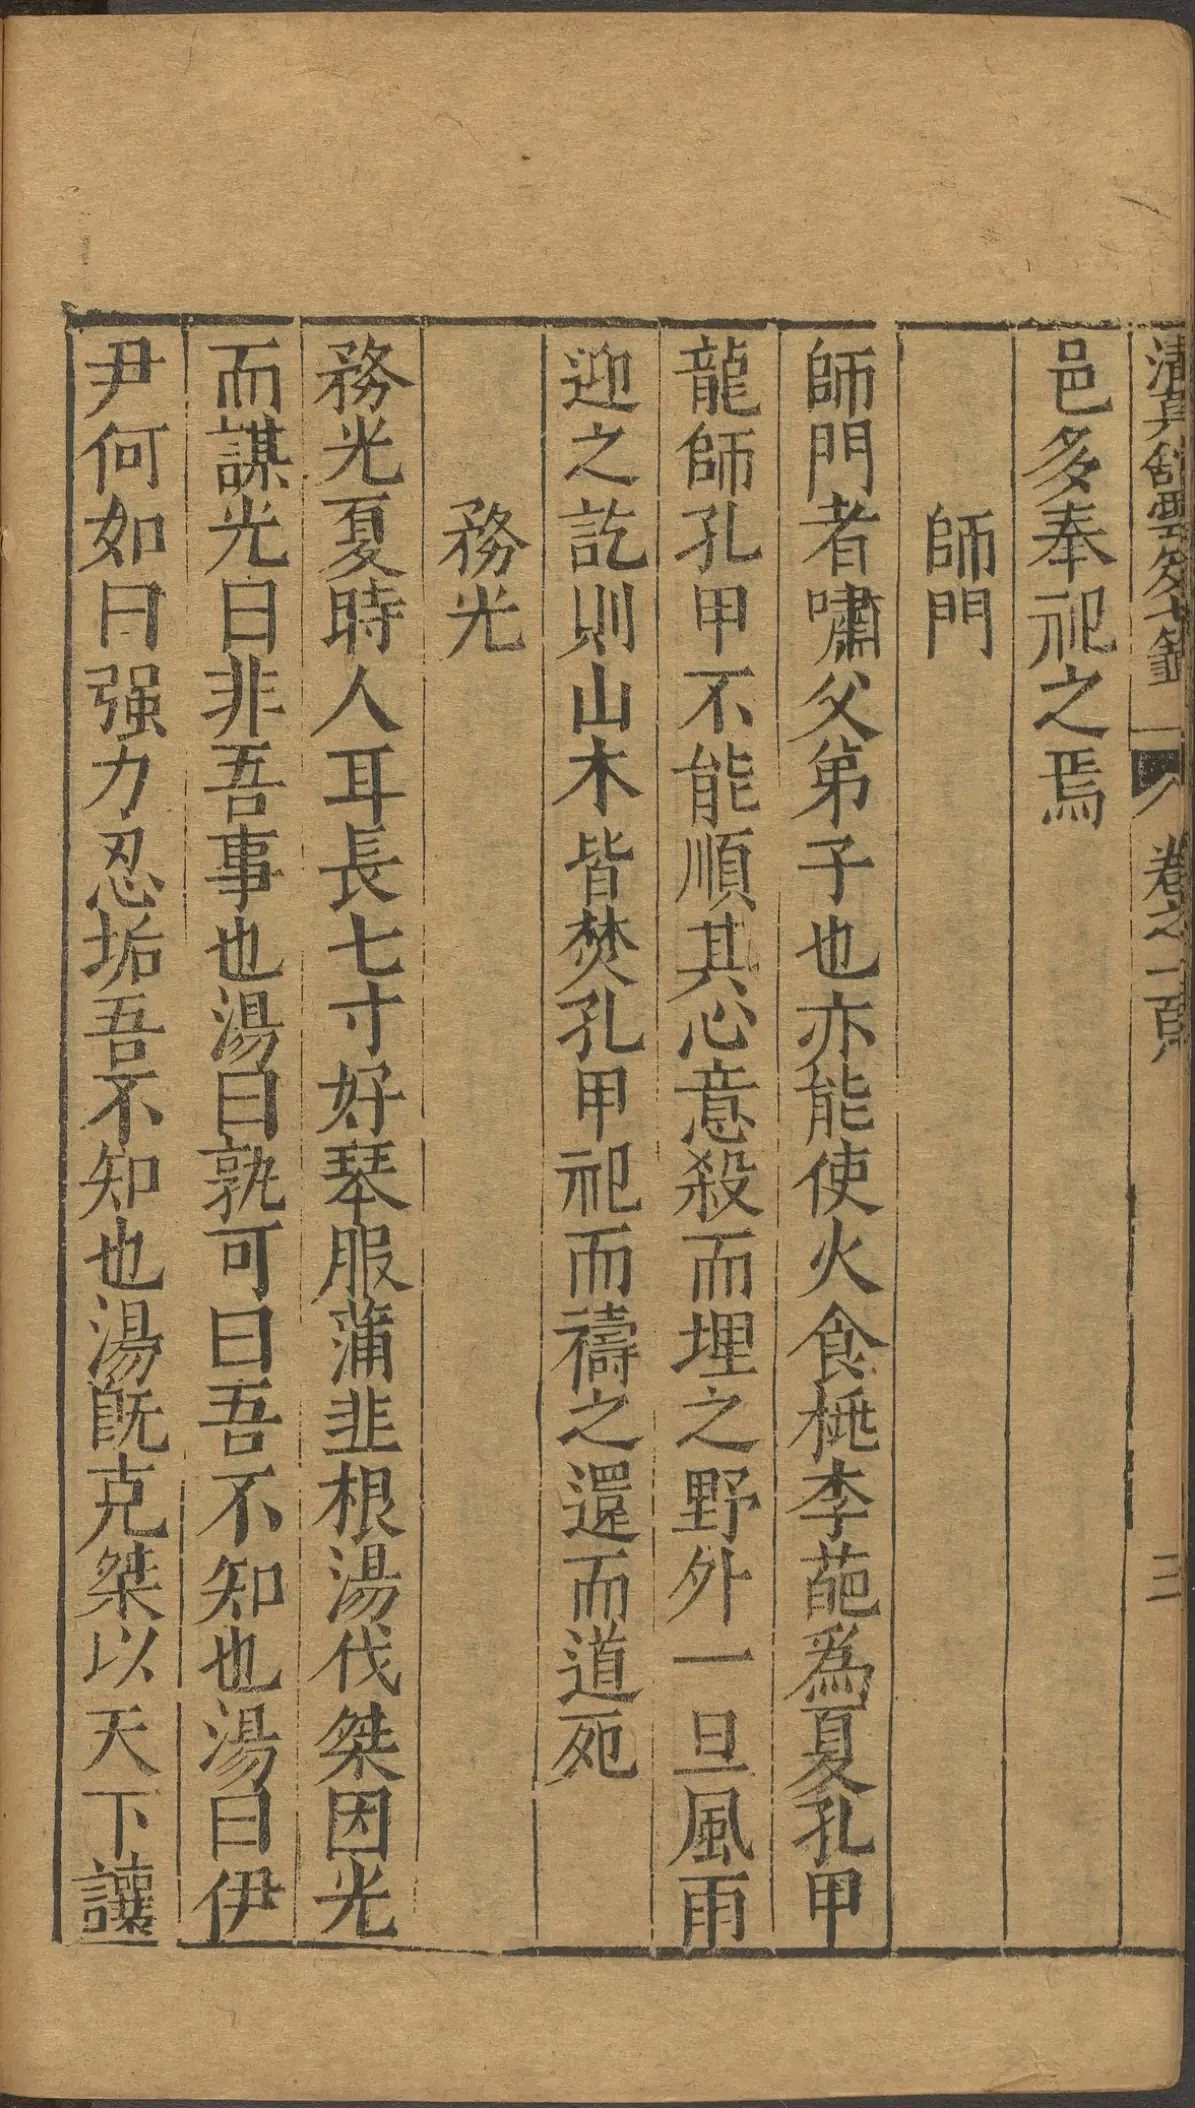 卷之一
三
邑多奉祀之焉
師門
師門者嘯父弟子也亦能使火食桃李葩爲夏孔甲
龍師孔甲不能順其心意殺而埋之野外一旦風雨
迎之訖則山木皆焚孔甲祀而禱之還而道死
務光
務光夏時人耳長七寸好琴服蒲韭根湯伐桀因光
而謀光曰非吾事也湯曰孰可曰吾不知也湯曰伊
尹何如曰强力忍垢吾不知也湯旣克桀以天下讓